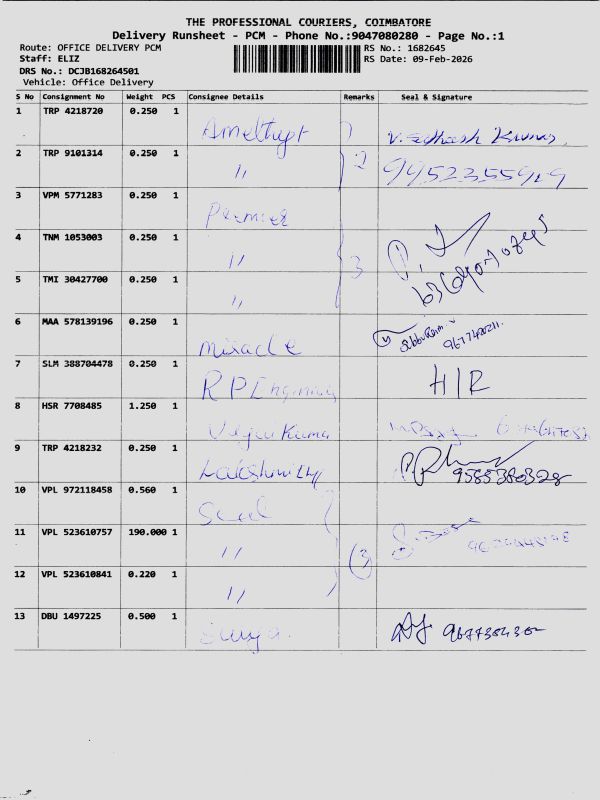 THE PROFESSIONAL COURIERS, COIMBATORE
Delivery Runsheet - PCM - Phone No.:9047080280 - Page No.:1
Route: OFFICE DELIVERY PCM RS No.: 1682645
Staff: ELIZ RS Date: 09-Feb-2026
DRS No.: DCJB168264501
Vehicle: Office Delivery
S No Consignment No Weight PCS Consignee Details Remarks Seal & Signature
1 TRP 4218720 0.250 1 Amethyst
2 TRP 9101314 0.250 1 " 2
3 VPM 5771283 0.250 1 Premier
4 TNM 1053003 0.250 1 " 3
5 TMI 30427700 0.250 1 "
6 MAA 578139196 0.250 1 Miracle
7 SLM 388704478 0.250 1 R P H/R
8 HSR 7708485 1.250 1 Kuma
9 TRP 4218232 0.250 1 9585380328
10 VPL 972118458 0.560 1
11 VPL 523610757 190.000 1 " (3)
12 VPL 523610841 0.220 1 "
13 DBU 1497225 0.500 1 Surya